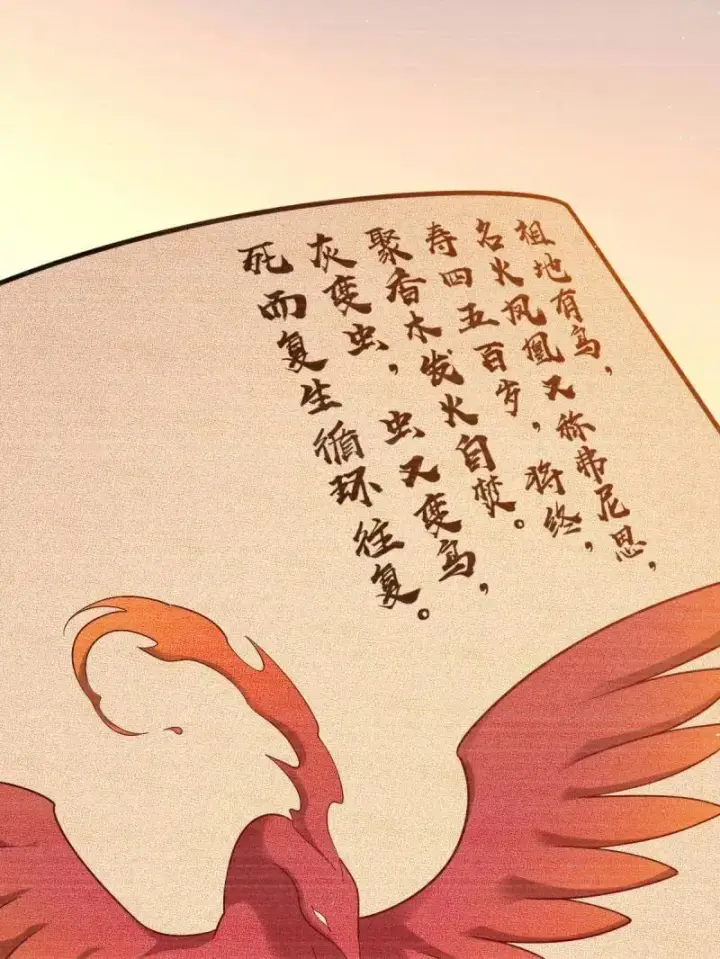 祖地有鸟，
名火凤凰又称弗尼思，
寿四五百岁，将终，
聚香木发火自焚。
灰变虫，虫又变鸟，
死而复生循环往复。